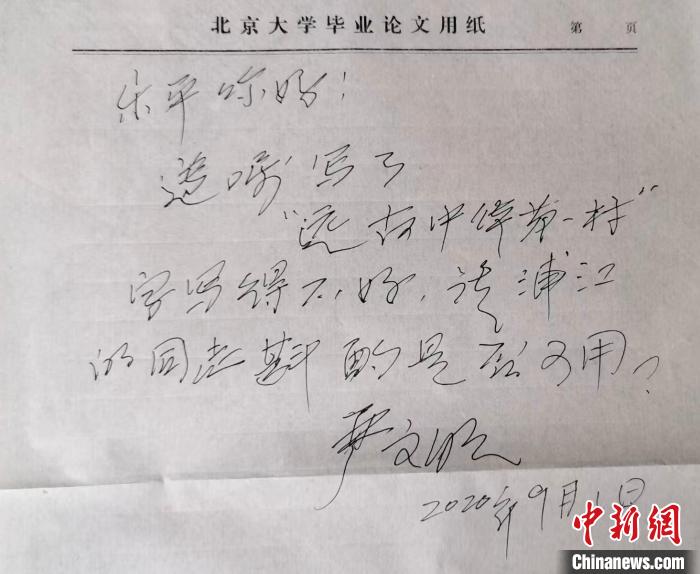 北京大学毕业论文用纸 第 页
乐平你好！
遵嘱写了
“远古中华第一村”
字写得不好，请浦江
的同志斟酌是否可用？
严文明
2020年9月1日
中新网
Chinanews.com